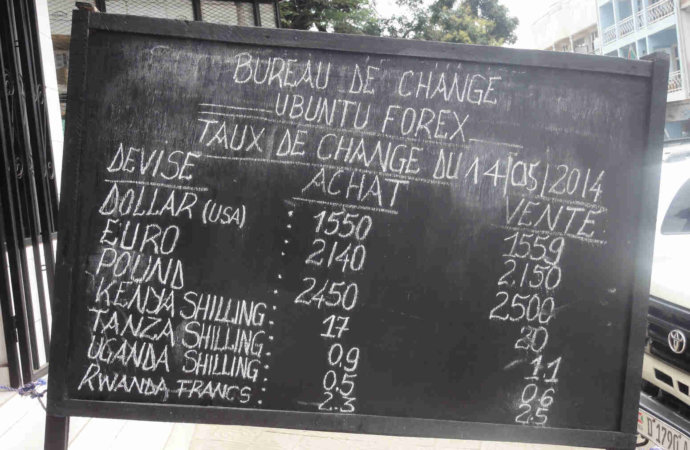 BUREAU DE CHANGE
UBUNTU FOREX
TAUX DE CHANGE DU 14/05/2014
DEVISE ACHAT VENTE
DOLLAR (USA) : 1550 1559
EURO : 2140 2.150
POUND : 2450 2.500
KENDA SHILLING : 17 20
TANZA SHILLING : 0.9 1.1
UGANDA SHILLING : 0.5 0.6
RWANDA FRANCS : 2.3 2.5